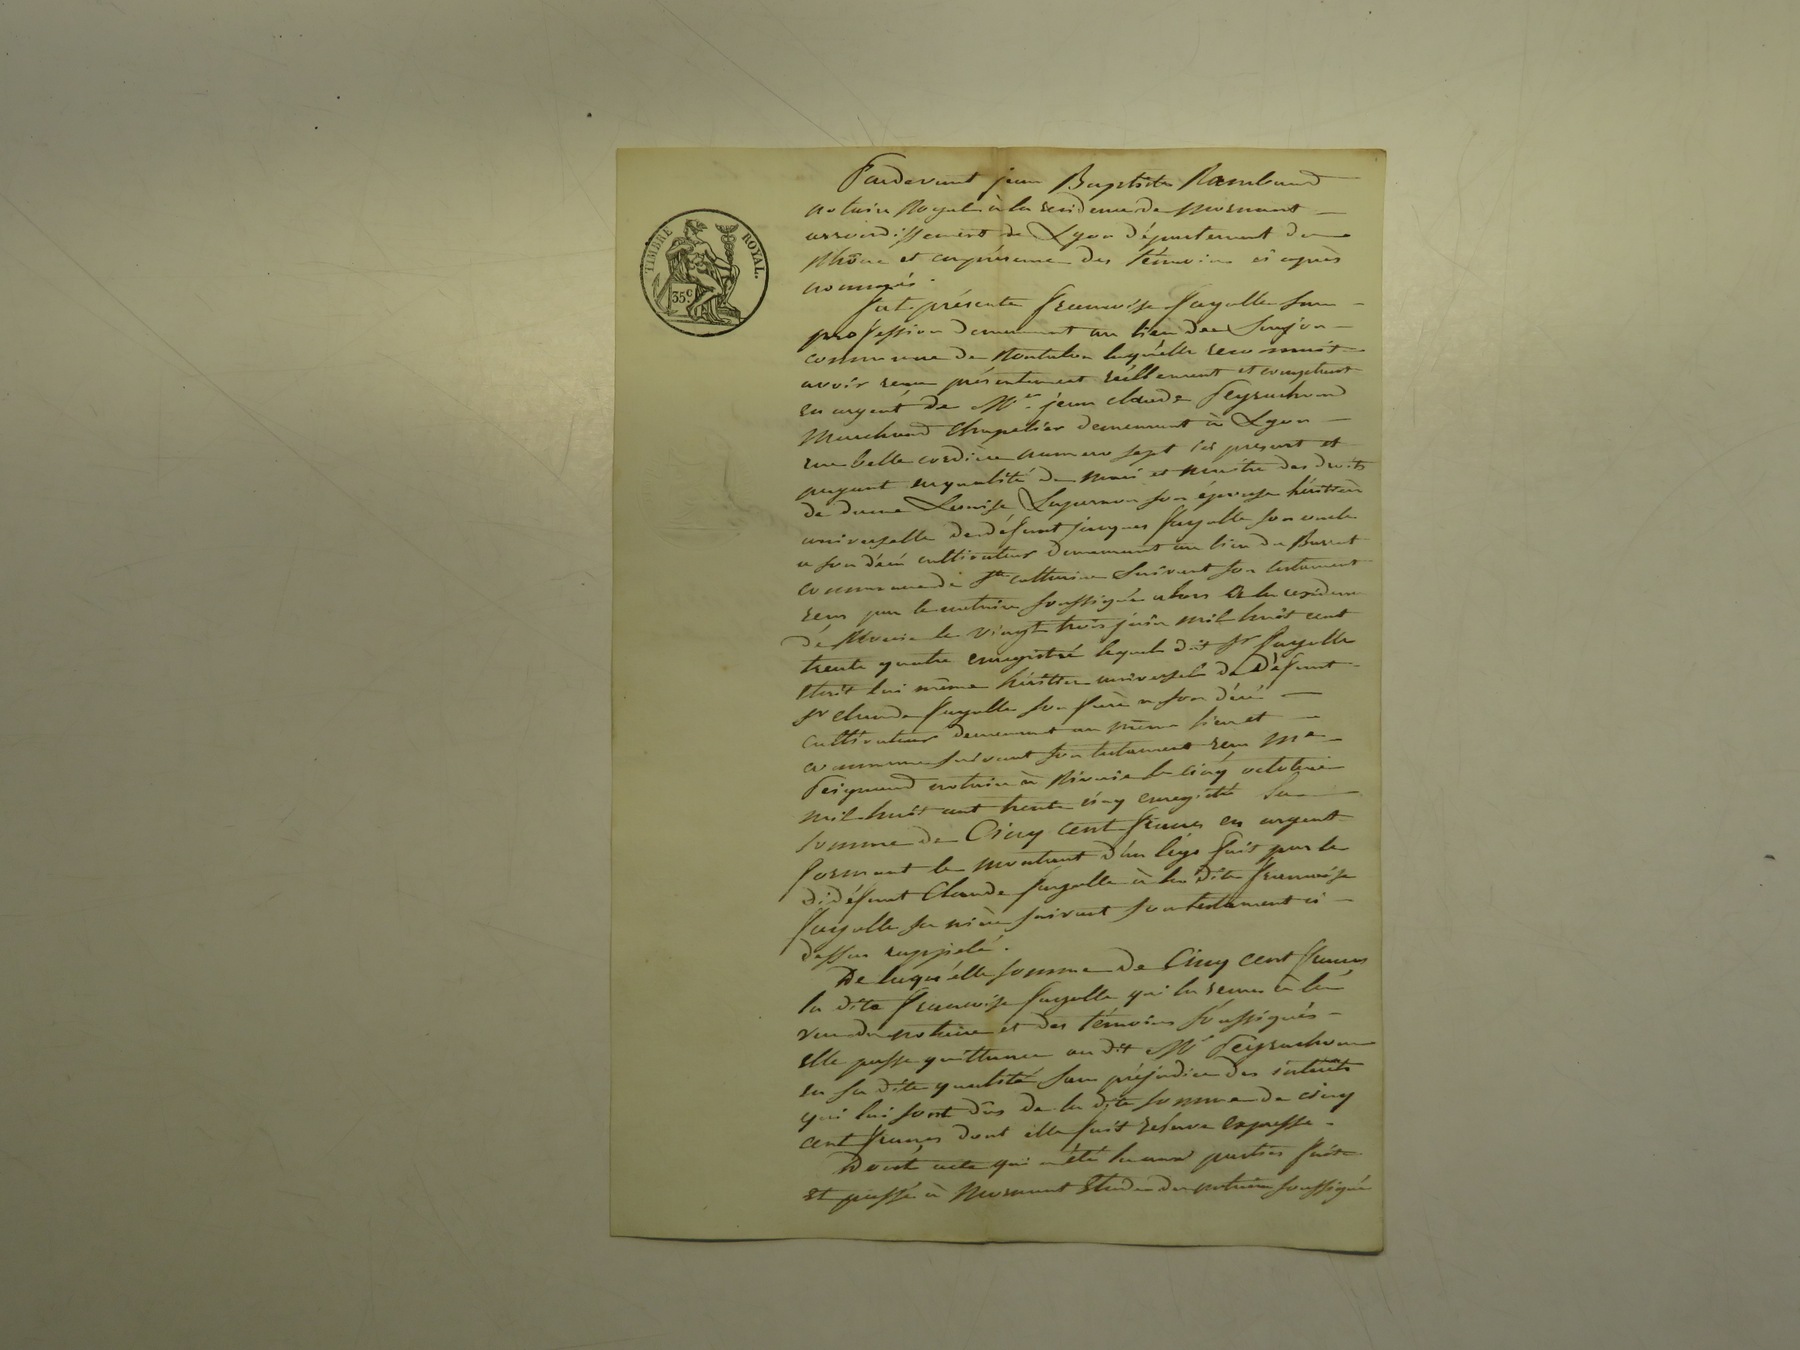 TIMBRE ROYAL.
35c
Pardevant jean Baptiste Rambaud
notaire Royal à la residence de Mornant
arrondissement de Lyon département du
Rhône et en présence des témoins ci après
nommés.
fut présente francoise fayolle sans
profession demeurant au lieu de
commune de laquélle reconnait
avoir reçu présentement réellement et comptant
en argent de Mr. jean claude Peyrachon
Marchand Chapelier demeurant à Lyon
rue belle cordière numero sept ici present et
payant en qualité de Mari et Maitre des droits
de dame Louise son épouse héritière
universelle de défunt jacques fayolle son oncle
a son décé cultivateur demeurant au lieu du
commune de Ste catherine suivant son testament
recu par le notaire soussigné alors à la residence
de Riverie le vingt trois juin mil huit cent
trente quatre enregistré lequel dit Sr fayolle
étoit lui même héritier universel de Défunt
Sr claude fayolle son frère a son décé
cultivateur demeurant au même lieu et
commune suivant son testament recu Me
notaire à Riverie le cinq octobre
mil huit cent trente cinq enregistré la
somme de Cinq cent francs en argent
formant le montant d'un legs fait par le
dit défunt Claude fayolle à la dite francoise
fayolle sa nièce suivant son testament ci
dessus rappelé.
De laquélle somme de Cinq cent francs
la dite francoise fayolle qui la recue à la
vue du notaire et des témoins soussignés
elle passe quittance au dit Mr Peyrachon
en sa dite qualité sans préjudice des intérêts
qui lui sont dûs de la dite somme de cinq
cent francs dont elle fait réserve expresse.
Dont acte qui a été lu aux parties fait
et passé à Mornant Etude du notaire soussigné